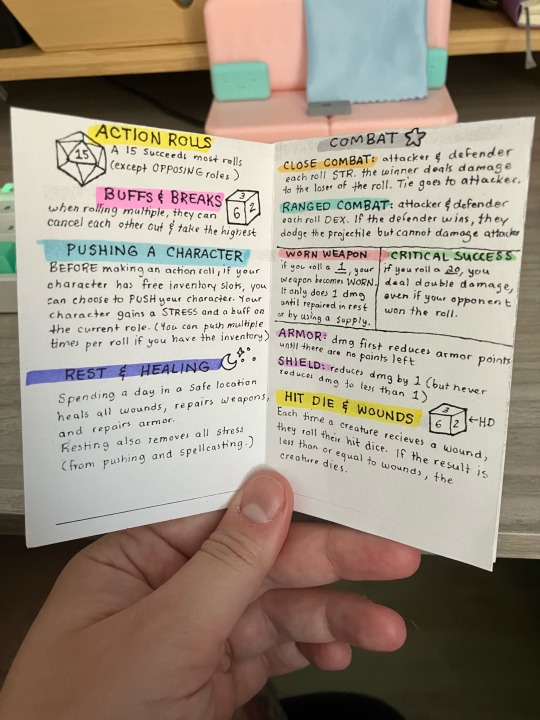 ACTION ROLLS
15
A 15 succeeds most rolls
(except OPPOSING roles)
BUFFS & BREAKS
3
6 2
when rolling multiple, they can
cancel each other out & take the highest
PUSHING A CHARACTER
BEFORE making an action roll, if your
character has free inventory slots, you
can choose to PUSH your character. Your
character gains a STRESS and a buff on
the current role. (You can push multiple
times per roll if you have the inventory)
REST & HEALING
Spending a day in a safe location
heals all wounds, repairs weapons,
and repairs armor.
Resting also removes all stress
(from pushing and spellcasting.)
COMBAT
CLOSE COMBAT: attacker & defender
each roll STR. the winner deals damage
to the loser of the roll. Tie goes to attacker.
RANGED COMBAT: attacker & defender
each roll DEX. If the defender wins, they
dodge the projectile but cannot damage attacker
WORN WEAPON
if you roll a 1, your
weapon becomes WORN.
It only does 1 dmg
until repaired in rest
or by using a supply.
CRITICAL SUCCESS
if you roll a 20, you
deal double damage,
even if your opponent
won the roll.
ARMOR: dmg first reduces armor points
until there are no points left
SHIELD: reduces dmg by 1 (but never
reduces dmg to less than 1)
HIT DIE & WOUNDS
3
6 2
←HD
Each time a creature recieves a wound,
they roll their hit dice. If the result is
less than or equal to wounds, the
creature dies.